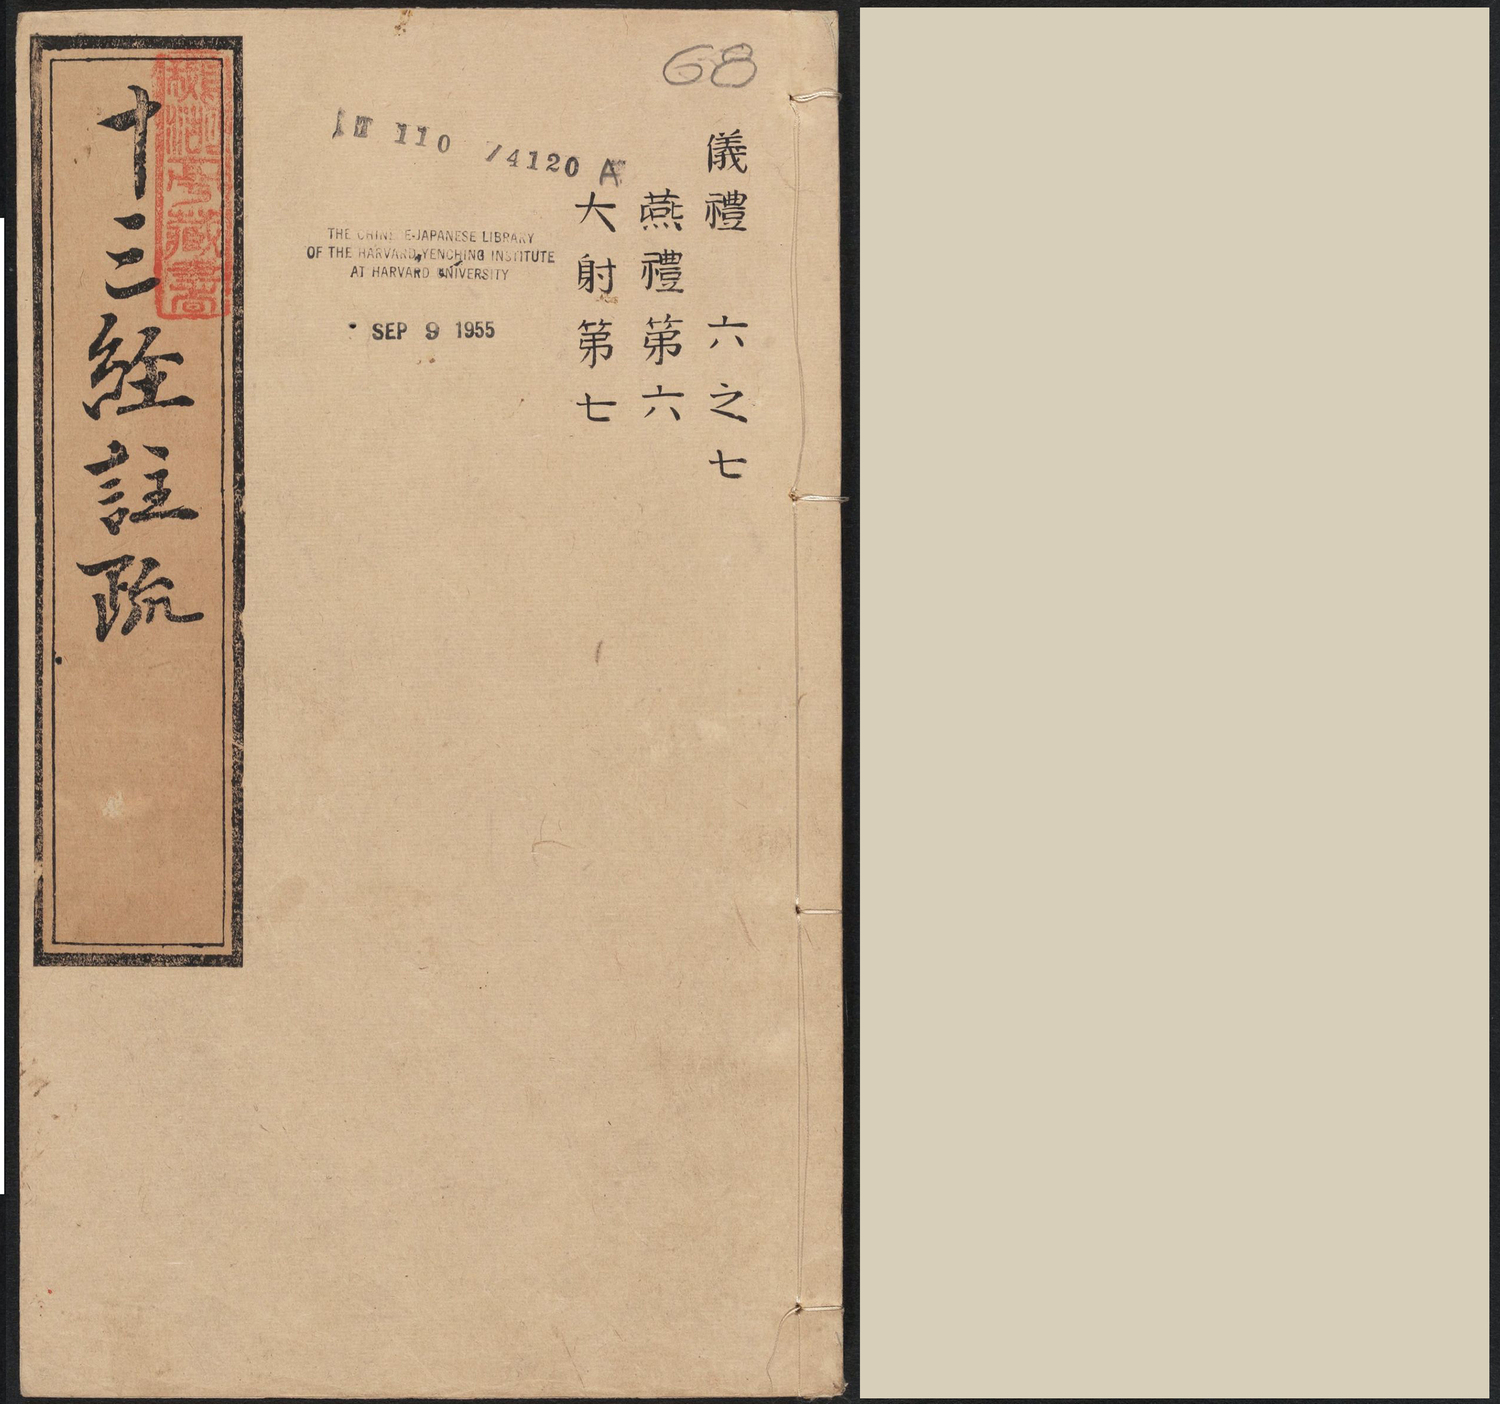 68
儀禮 六之七
燕禮第六
大射第七
110 /4120 A
THE CHINESE-JAPANESE LIBRARY
OF THE HARVARD-YENCHING INSTITUTE
AT HARVARD UNIVERSITY
SEP 9 1955
十三經註疏
藏書